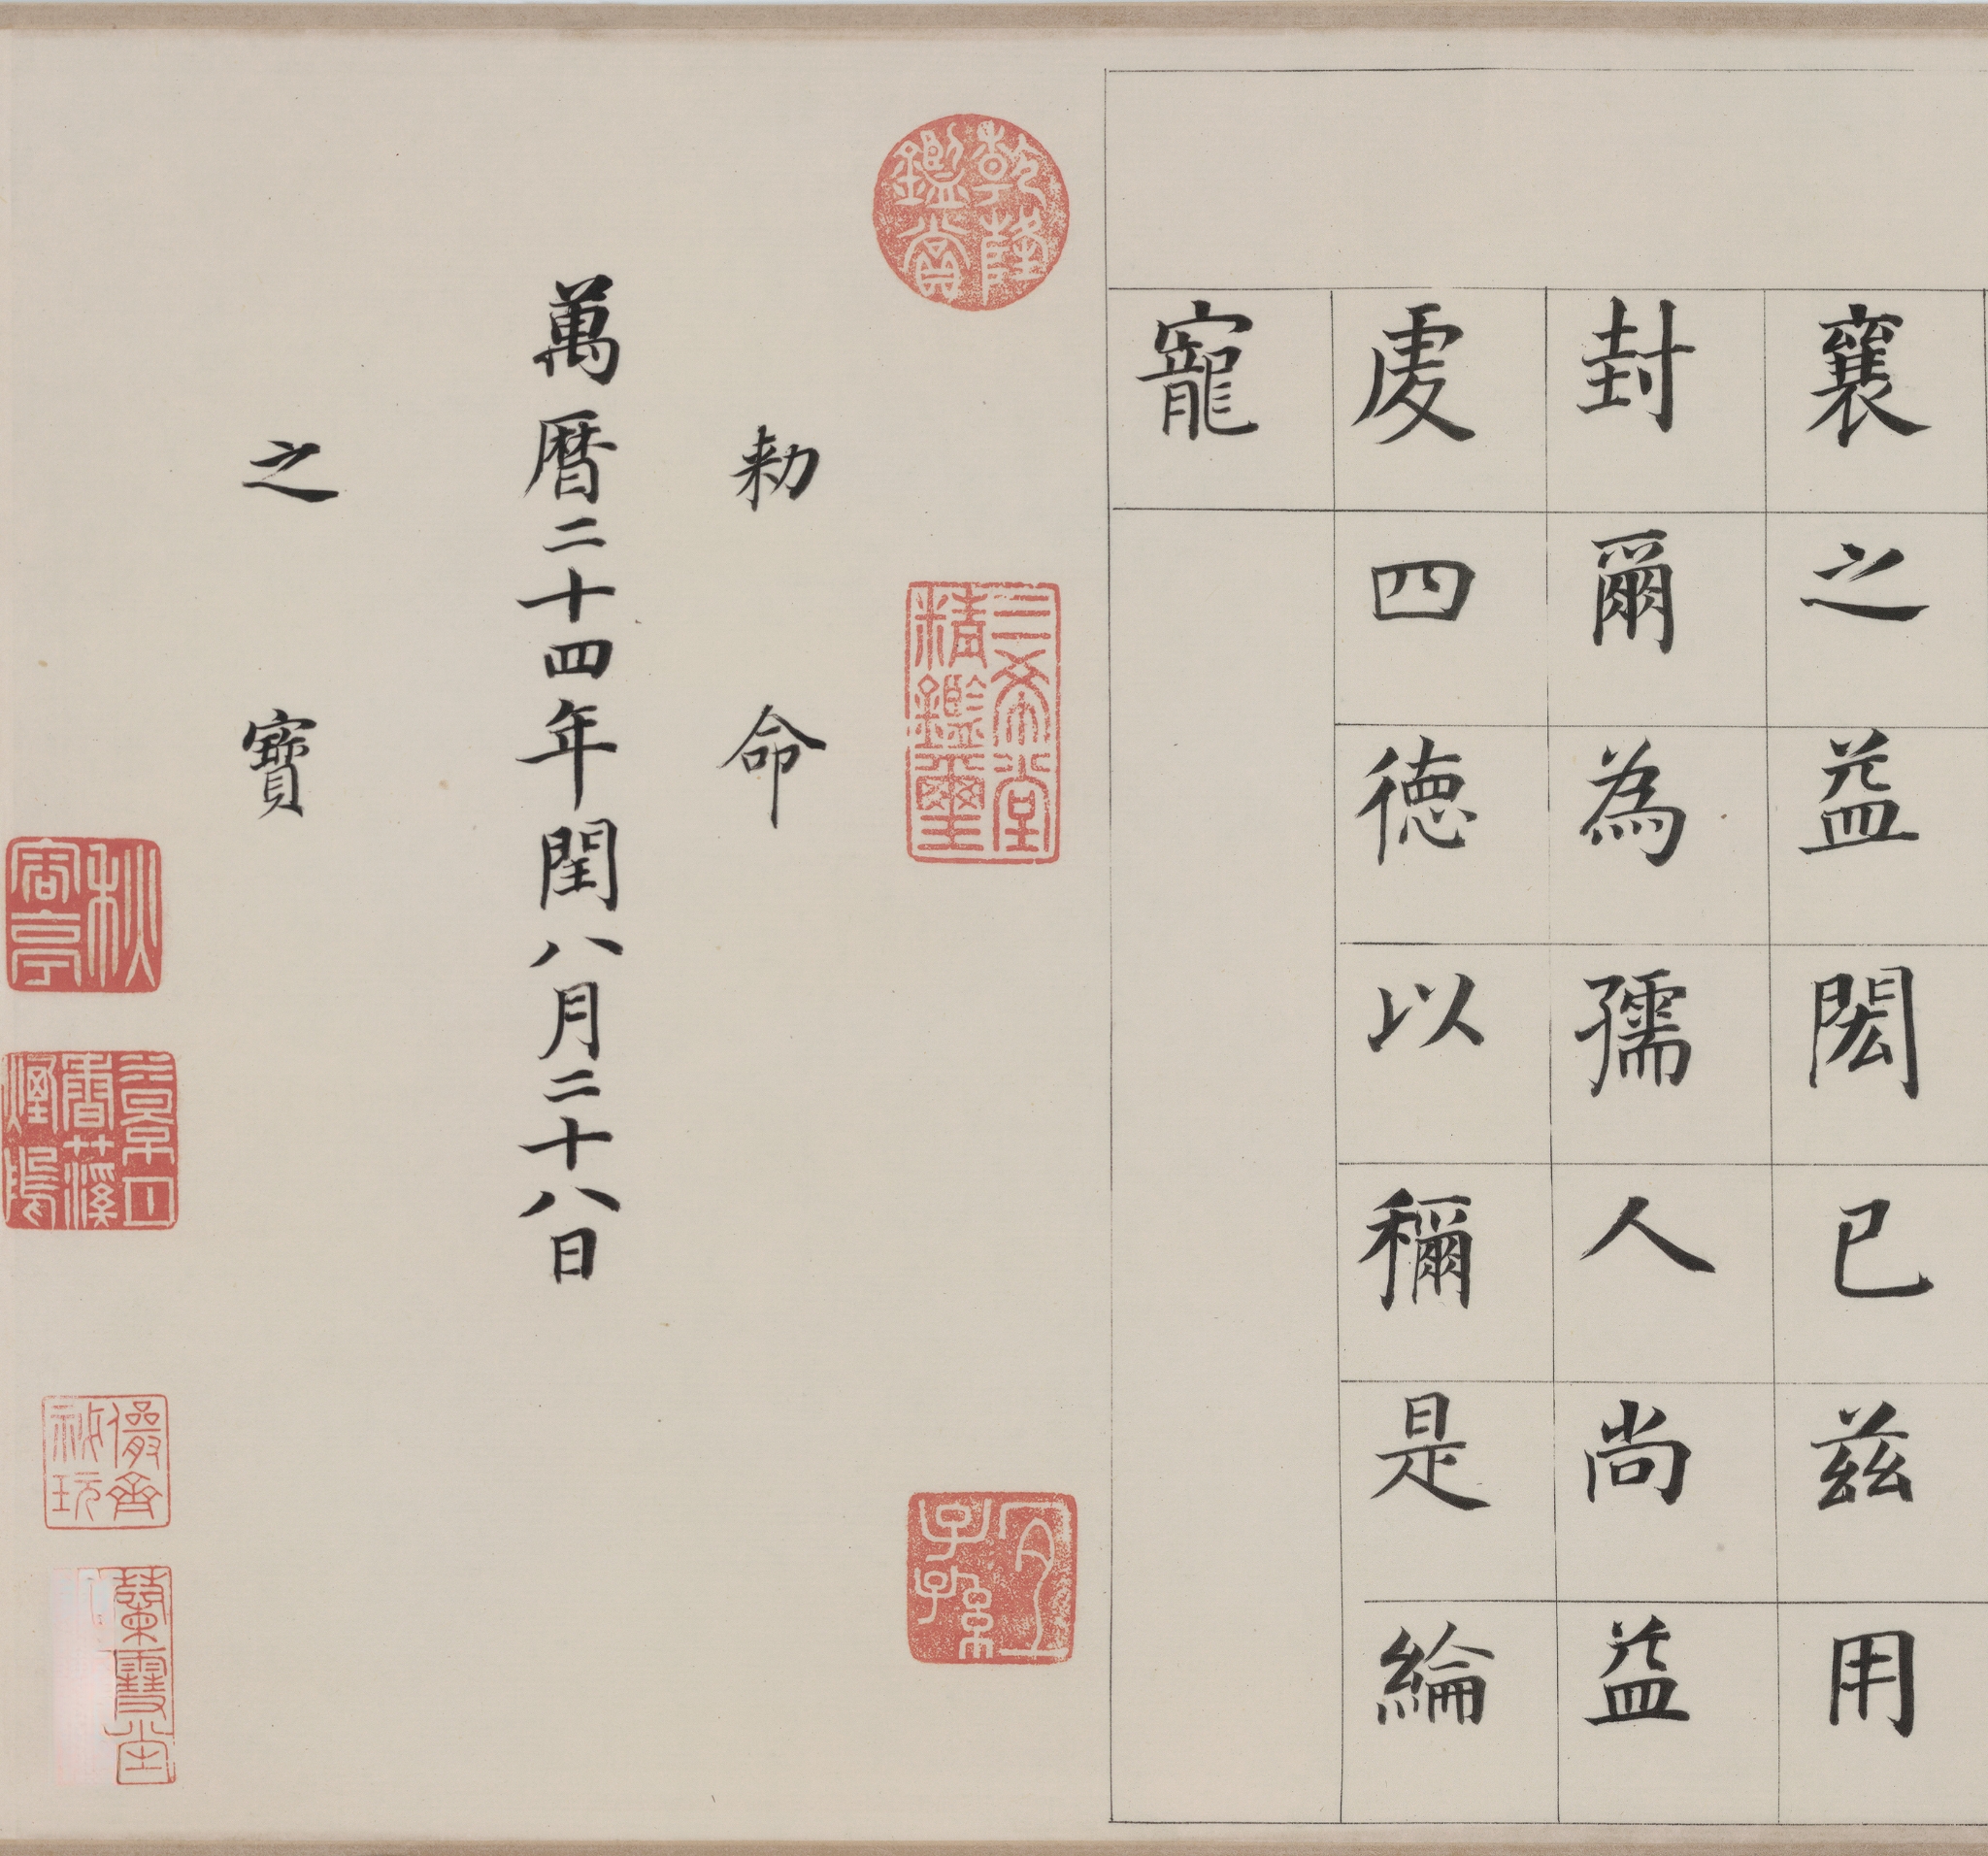 襄之益閎已兹用
封爾為孺人尚益
虔四德以稱是綸
寵
乾隆鑑賞
三希堂精鑑璽
宜子孫
勑命
萬曆二十四年閏八月二十八日
之寶
秋
儼齋秘玩